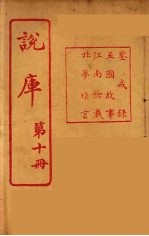 說庫
第十冊
鑒戒錄
五國故事
江南餘載
北夢瑣言